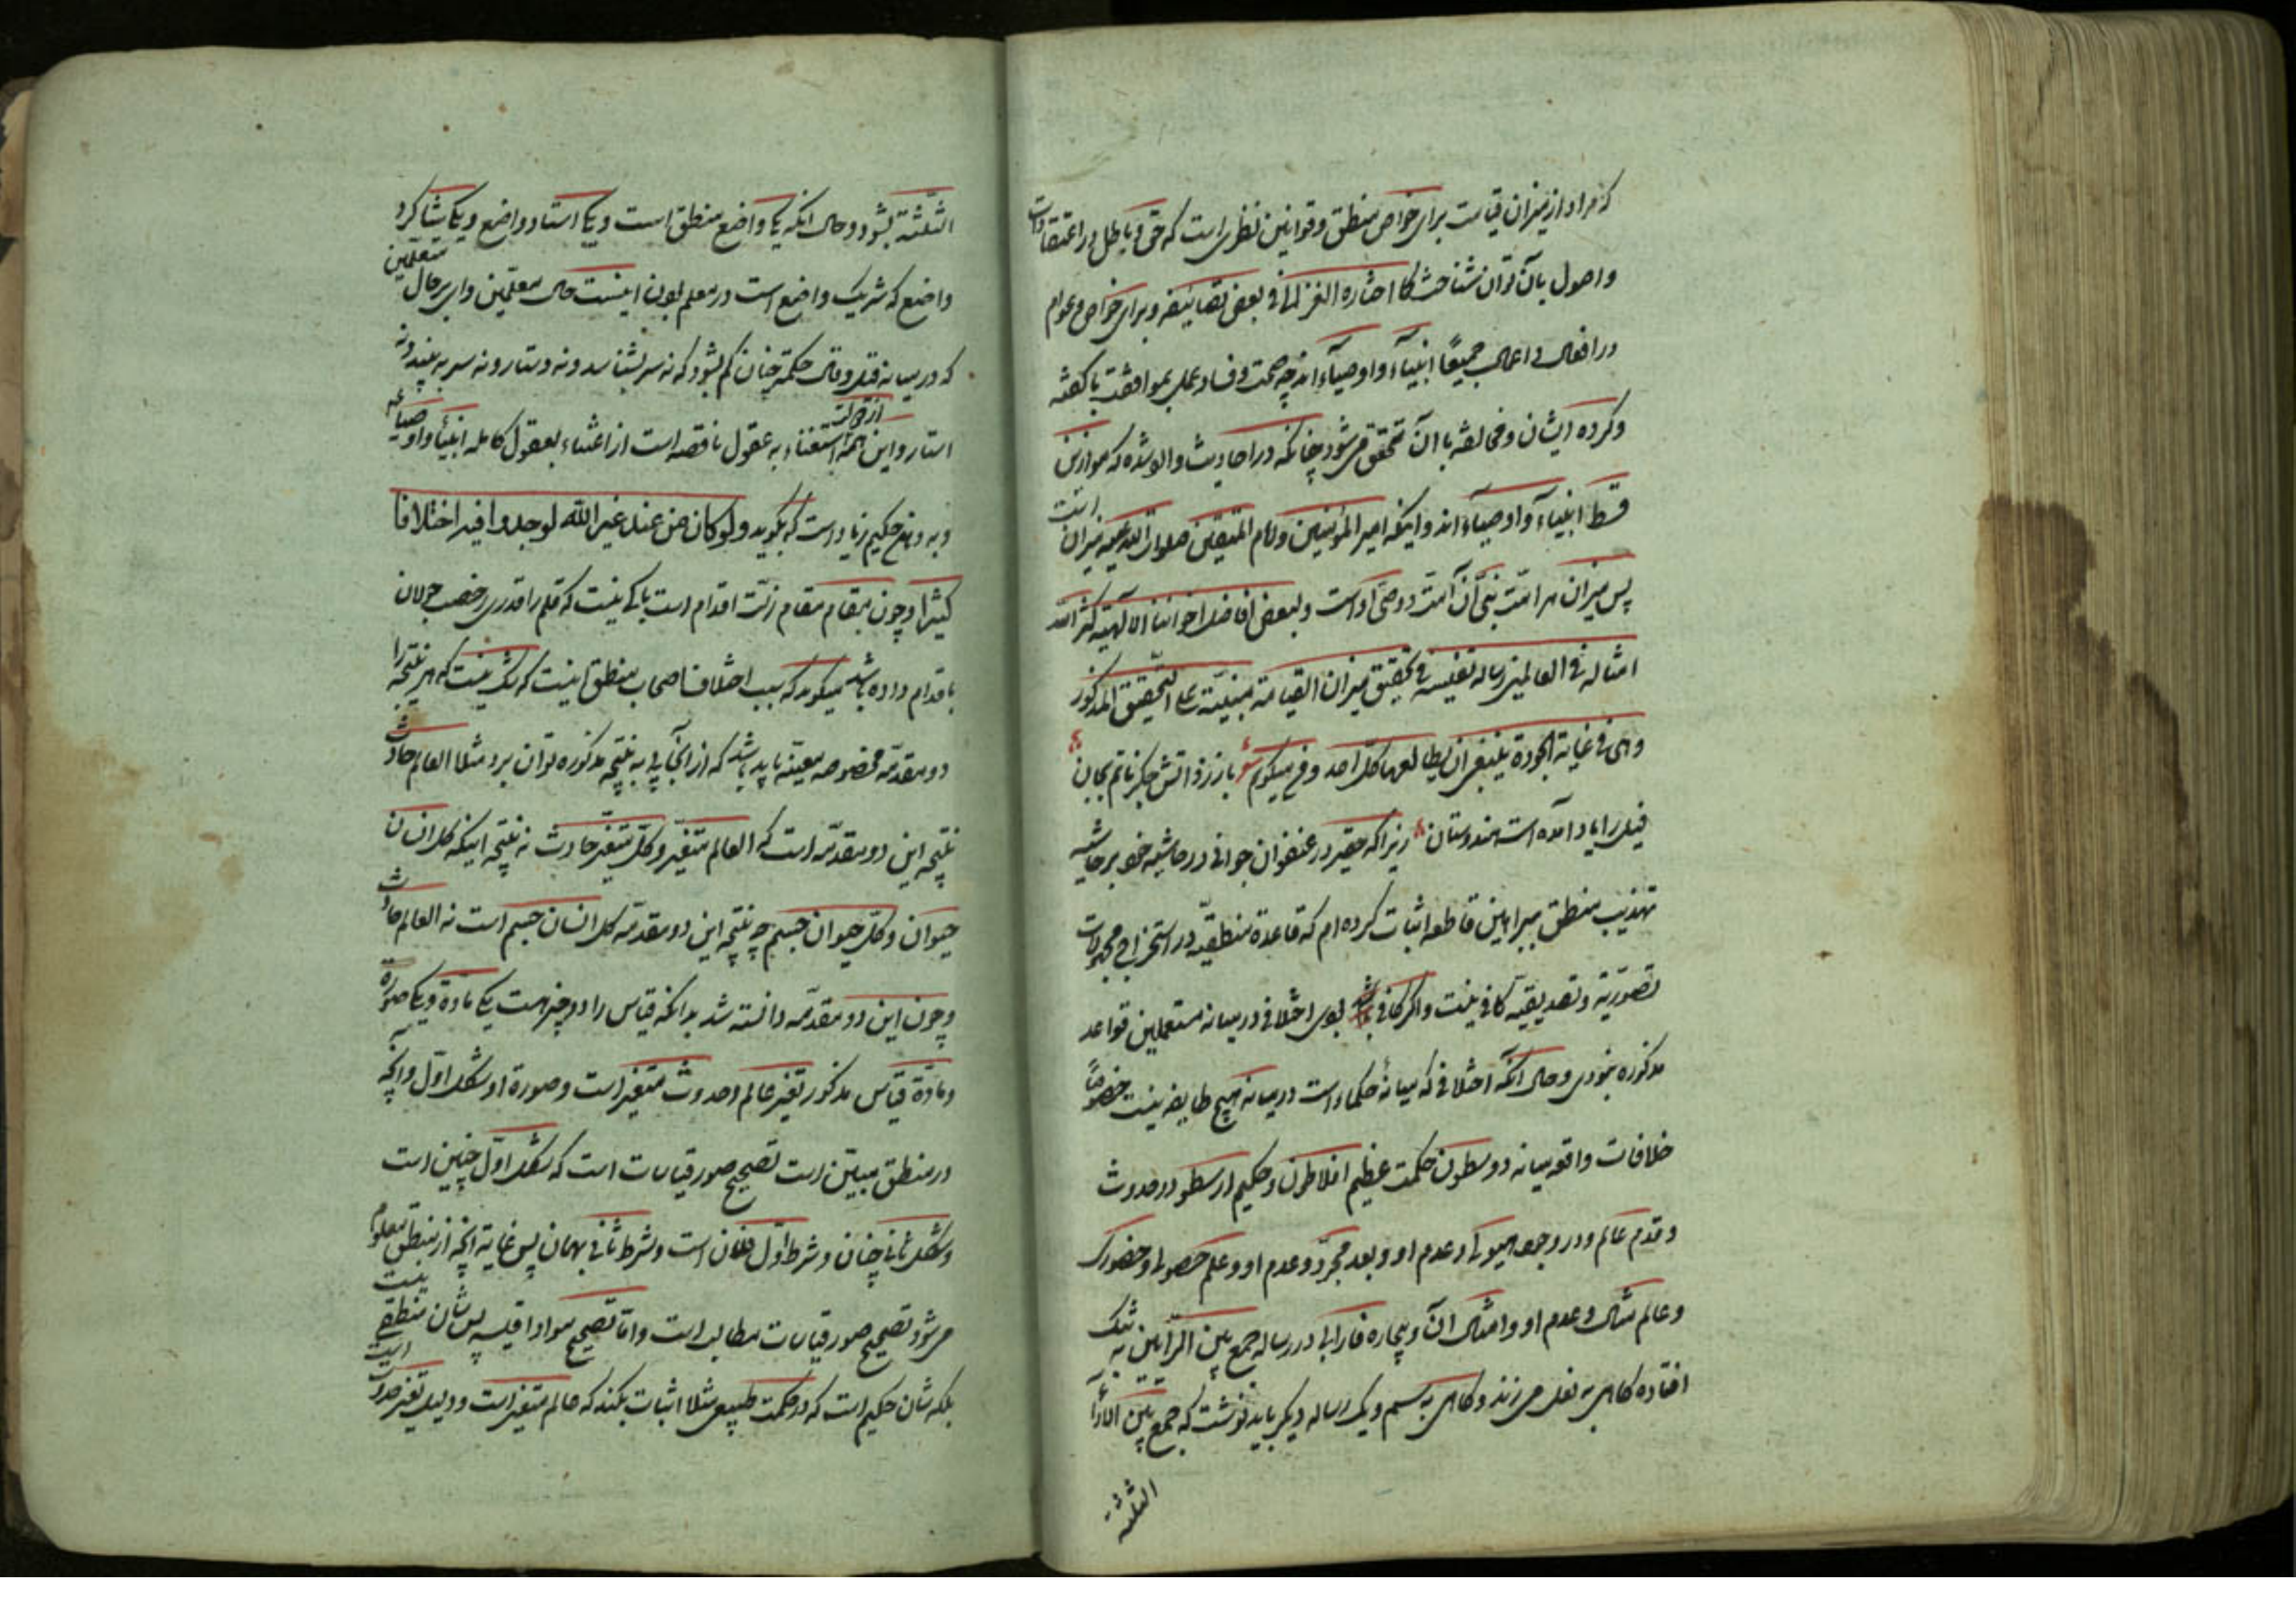 که مراد از میزان قیامت برای خواص منطق و قوانین نظری است که حق و باطل در اعتقادات
و اصول بآن توان شناخت کما اشاره الغزالی فی بعض تصانیفه و برای خواص و عوام
در افعال و اعمال جمیعًا انبیآء و اوصیآء اند چه صحت و فساد عمل بموافقت با کفته
و کرده ایشان و مخالفت با آن متحقق میشود چنانکه در احادیث وارد شده که موازین
قسط انبیآء و اوصیآء اند و اینکه امیر المؤمنین و امام المتقین صلوات الله علیه میزان است
پس میزان هر امّت نبیّ آن امّت و وصیّ او است و لبعض افاضل اخواننا الالهیّة کثر الله
امثاله فی العالمین رساله نفیسه فی تحقیق میزان القیامة مبنیّة علی التّحقیق المذکور
و هی فی غایة الجودة ینبغی ان یطالعها کلّ احد و فی میکویم شو باز زد آتش جکر تا بجان
فیل را یاد آمده است هندوستان زیرا که حقیر در عنفوان جوانی در حاشیه خود بر حاشیه
تهذیب منطق ببراهین قاطعه اثبات کرده ام که قاعدة منطقیّه در استخراج مجهولات
تصوّریّه و تصدیقیّه کافی نیست و اکر کافی باشد بودی اختلافی در میانه مستعملین قواعد
مذکوره نبودی و حال آنکه اختلافی که میانهٔ حکماء است در میانه هیچ طایفه نیست خصوصًا
خلافات واقعه میانه دو سطون حکمت عظیم افلاطون و حکیم ارسطو در حدوث
و قدم عالم و در وجود هیولی و عدم او و بعد مجرّد و عدم او و علم حصولی و حضوری
و عالم مثال و عدم او و امثال آن و بیچاره فارابی در رساله جمع بین الرّأیین به تنک
افتاده کاهی به نعل میزند و کاهی به سم و یک رساله دیکر باید نوشت که جمع بین الآراء
الثلثة
الثّلثة بشود و حال آنکه یکی واضع منطق است و یکی استاد واضع و یکی شاکرد
واضع که شریک واضع است در معلم بودن اینست حال معلّمین وای بر حال متعلمین
که در میانه قیل و قال حکمة چنان کم بشود که نه سر بشناسد و نه دستار و نه سر به بیند و نه
استار و این همه از جهت استغناء به عقول ناقصه است از اغتناء بعقول کامله انبیآء و اوصیآء
و به و نوع حکیم زیاد است که بگوید و لو کان من عند غیر الله لوجدوا فیه اختلافا
کثیرا و چون مقام مقام زلّت اقدام است باکی نیست که قلم را قدری رخصت جولان
باقدام داده باشد میکوید که سبب اختلاف اصحاب منطق اینست که شک نیست که هر نتیجه را
دو مقدّمه مخصوصه معیّنه باید باشد که از آنجا پی به نتیجه مذکوره توان برد مثلا العالم حادث
نتیجه این دو مقدّمه است که العالم متغیّر و کلّ متغیّر حادث نه نتیجه اینکه کل انسان
حیوان و کلّ حیوان جسم چه نتیجه این دو مقدّمه کل انسان جسم است نه العالم حادث
و چون این دو مقدّمه دانسته شد بدانکه قیاس را دو چیز هست یکی مادة و یکی صورة
و مادّة قیاس مذکور تغیّر عالم و حدوث متغیّر است و صورة او شکل اوّل و آنچه
در منطق مبیّن است تصحیح صور قیاسات است که شکل اوّل چنین است
و شکل ثانی چنان و شرط اوّل فلان است و شرط ثانی بهمان پس غایة آنچه از منطق معلوم
میشود تصحیح صور قیاسات مطالب است و امّا تصحیح مواد اقیسه پس شان منطقی نیست
بلکه شان حکیم است که در حکمت طبیعی مثلا اثبات بکند که عالم متغیّر است و دلیل تغیّر حدوث است